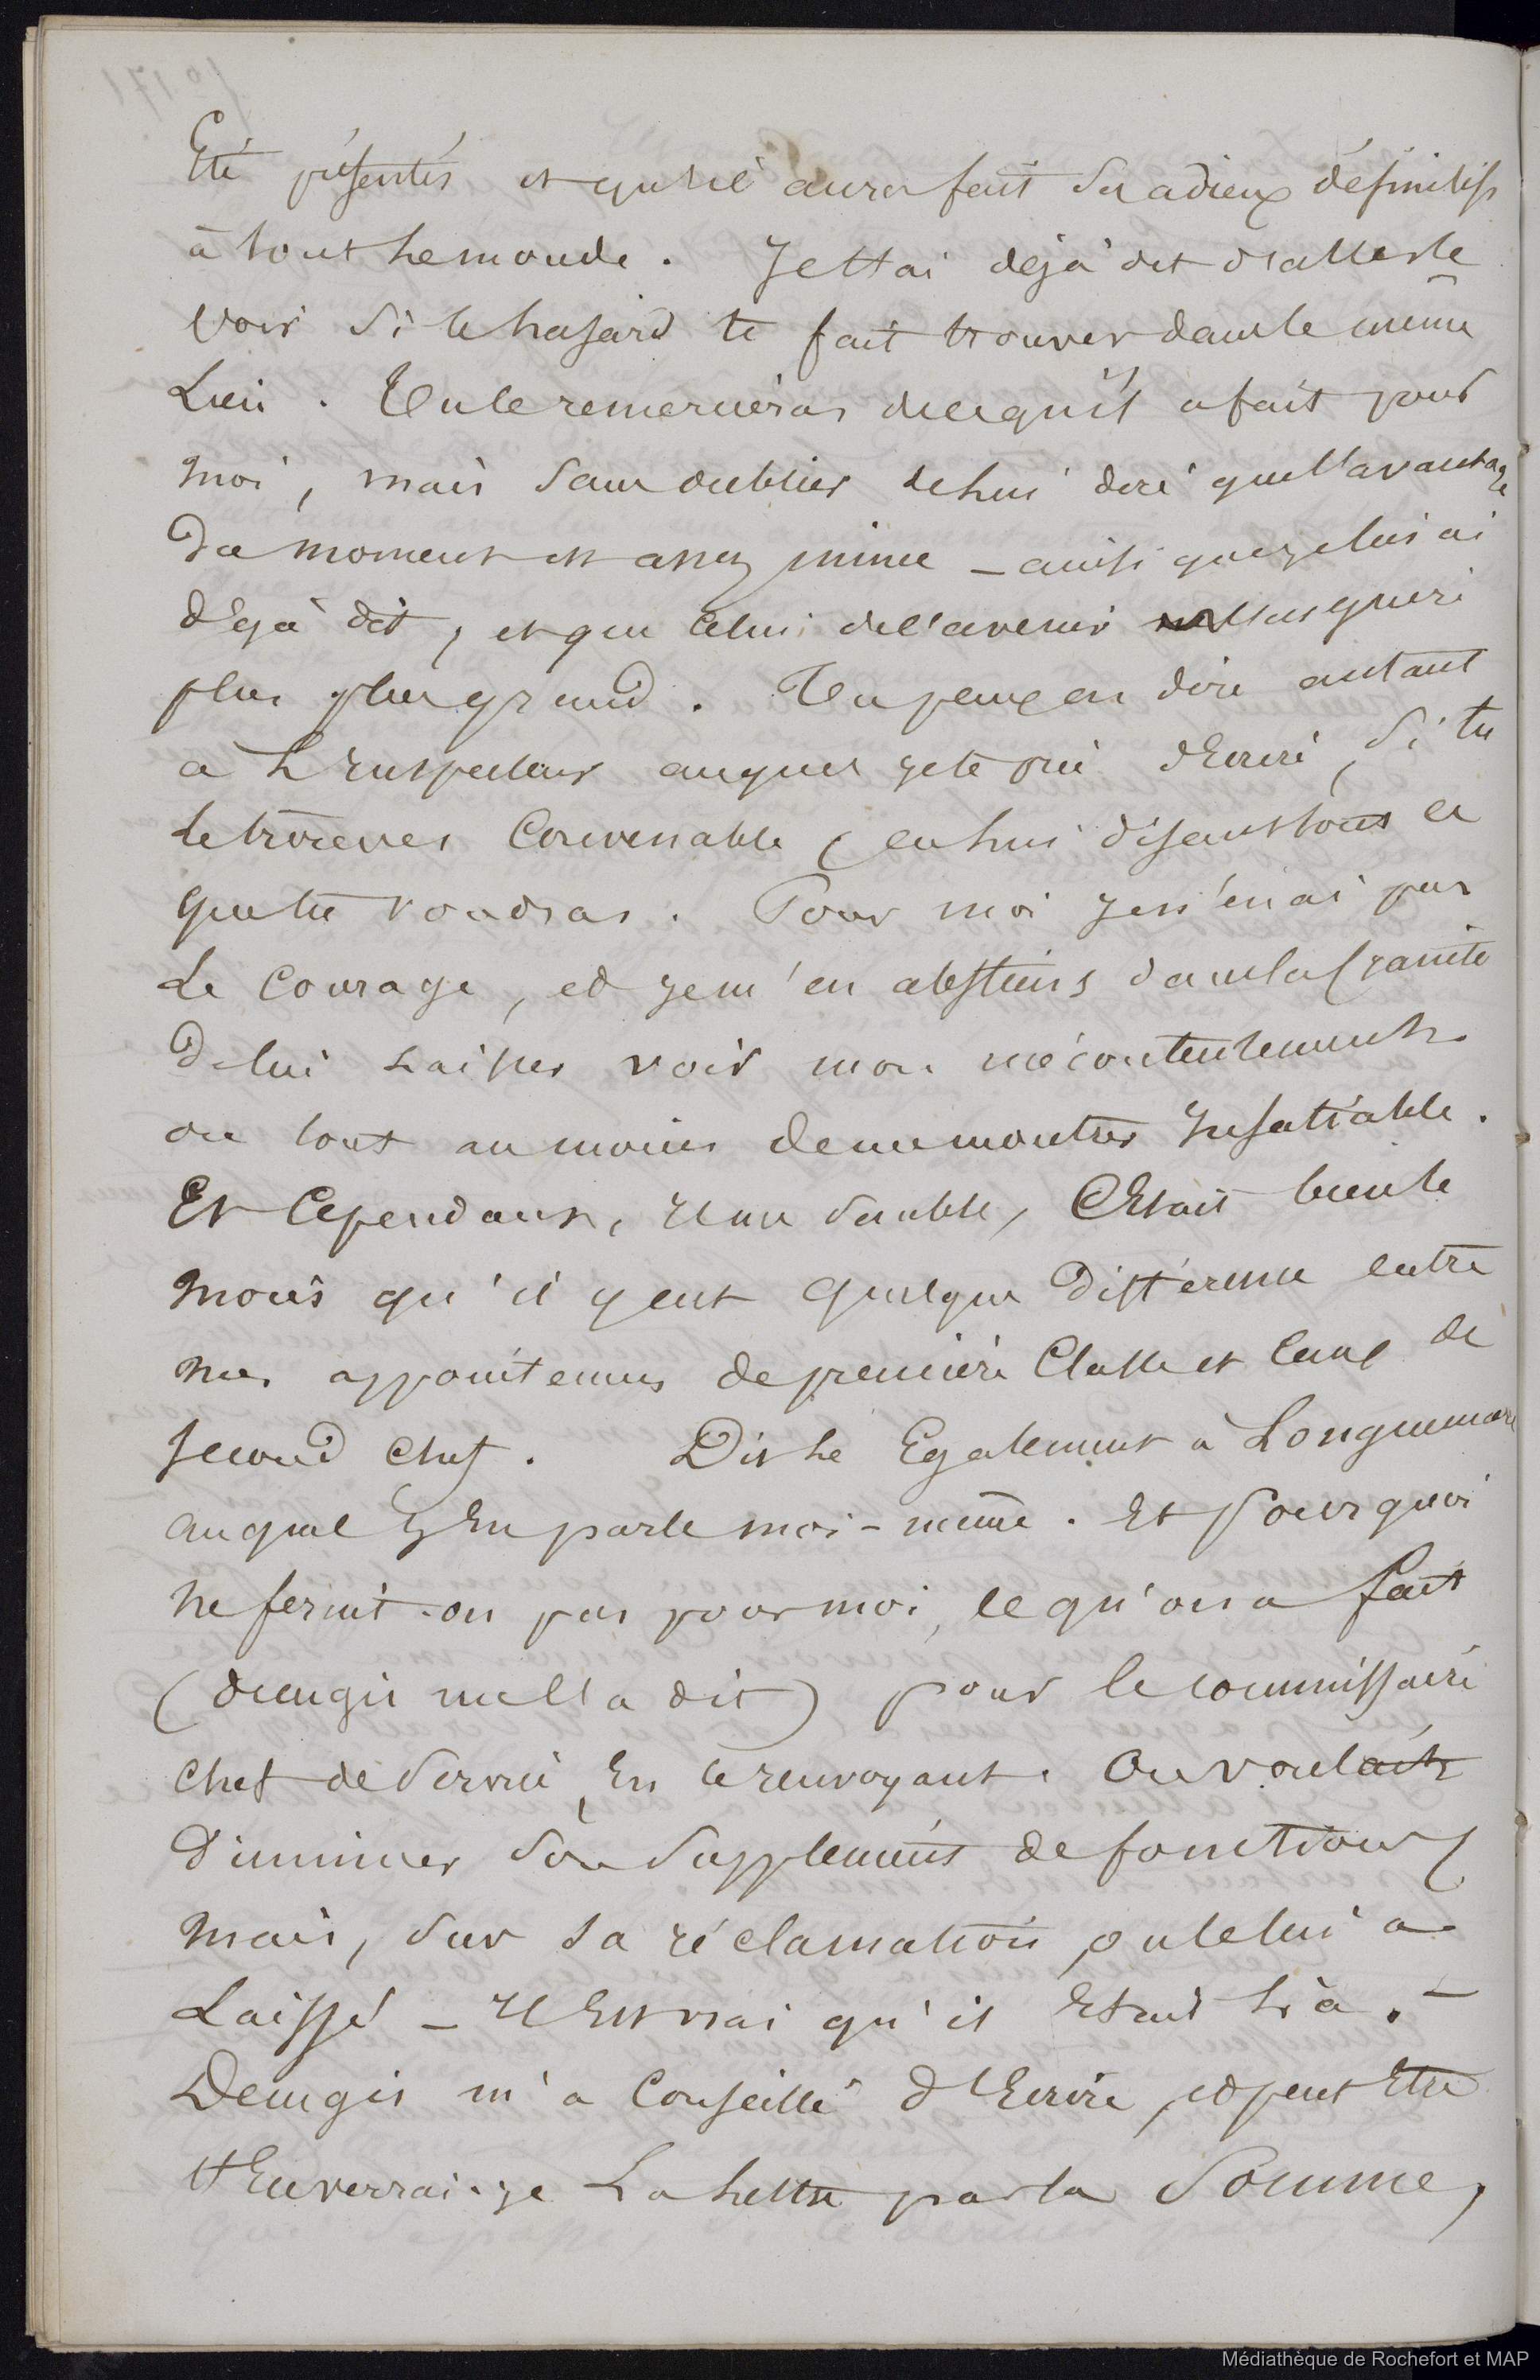 Eté présentés et qu'il aura fait ses adieux définitifs
à tout le monde. Je t'ai déjà dit d'aller le
voir si le hasard te fait trouver dans le même
Lieu. Tu le remercieras de ce qu'il a fait pour
moi, mais sans oublier de lui dire que l'avantage
du moment est assez mince – ainsi que je lui ai
déjà dit, et que celui de l'avenir n'est guère
plus plus grand. Tu peux en dire autant
à L'Inspecteur auquel je te prie d'Ecrire, si tu
le trouves Convenable, en lui disant tout ce
que tu voudras. Pour moi je n'en ai pas
Le Courage, et je m'en abstiens dans la crainte
de lui laisser voir mon mécontentement
ou tout au moins de me montrer Insatiable.
Et Cependant, Il me semble, C'Etait bien le
moins qu'il y eut quelque différence entre
mes appointemens de première Classe et ceux de
second chef. Dis le Egalement à Longuemare
auquel j'En parle moi-même. Et Pourquoi
ne ferait-on pas pour moi, ce qu'on a fait
( me l'a dit) pour le commissaire
chef de Service, En le renvoyant. On voulait
Diminuer son Supplément de fonctions,
mais, sur sa réclamation, on le lui a
Laissé – Il Est vrai qu'il Etait Là. –
m'a Conseillé d'Ecrire, et peut Etre
t'Enverrai-je La Lettre par la Somme,
Médiathèque de Rochefort et MAP